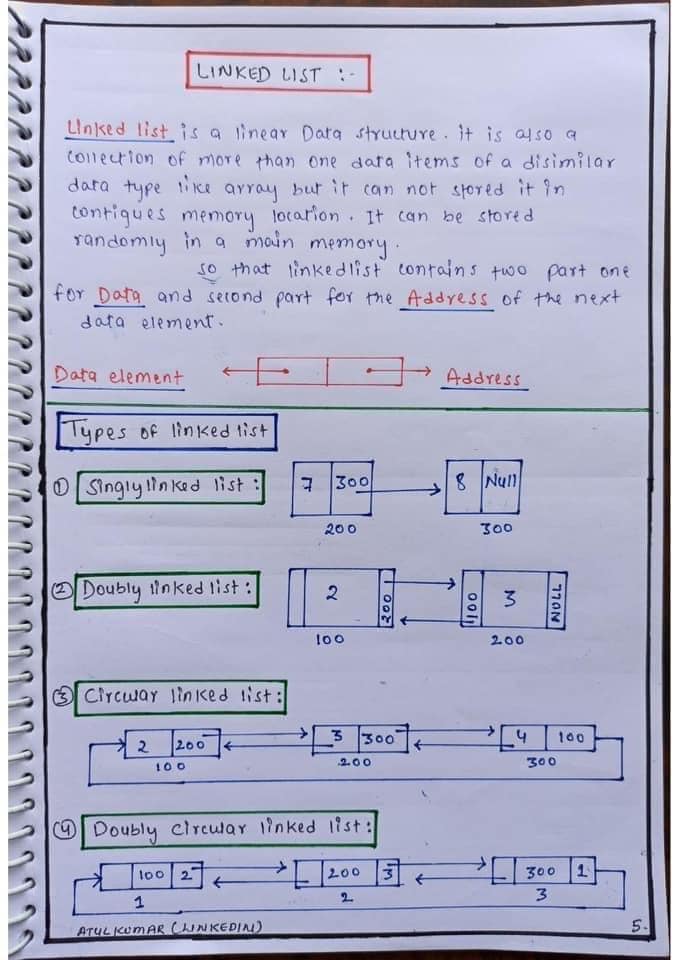 LINKED LIST :-
Linked list is a linear Data structure. it is also a
collection of more than one data items of a disimilar
data type like array but it can not stored it in
contigues memory location. It can be stored
randomly in a main memory.
so that linkedlist contains two part one
for Data and second part for the Address of the next
data element.
Data element Address
Types of linked list
① Singly linked list : 7 300 8 Null
200 300
② Doubly linked list : 2 200 100 3 NULL
100 200
③ Circular linked list :
2 200 3 300 4 100
100 200 300
④ Doubly circular linked list :
100 2 200 3 300 1
1 2 3
ATUL KUMAR (LINKEDIN) 5.